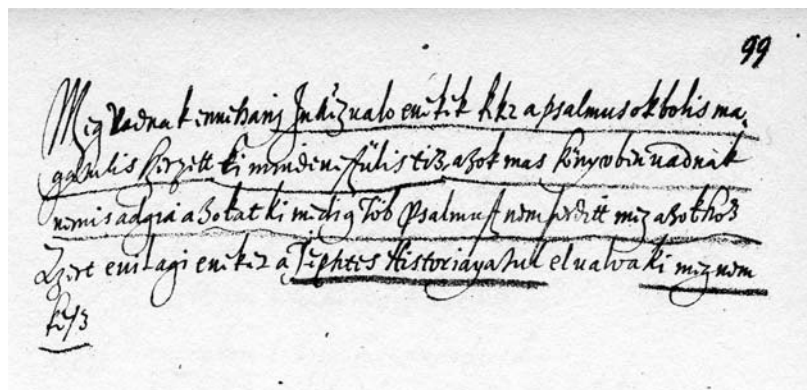 99
Meg Vadnak ennehanj Inhez ualo enekek kkz a psalmusokbolis ma,
gatulis szerzett ki mindenestülis tiz, azok mas könywben uadnak
nemis adgia azokat ki medig Töb Psalmust nem fordett meg azokhoz
Azert euilagi a Jephtes Historiayatul elualwa ki meg nem
kesz